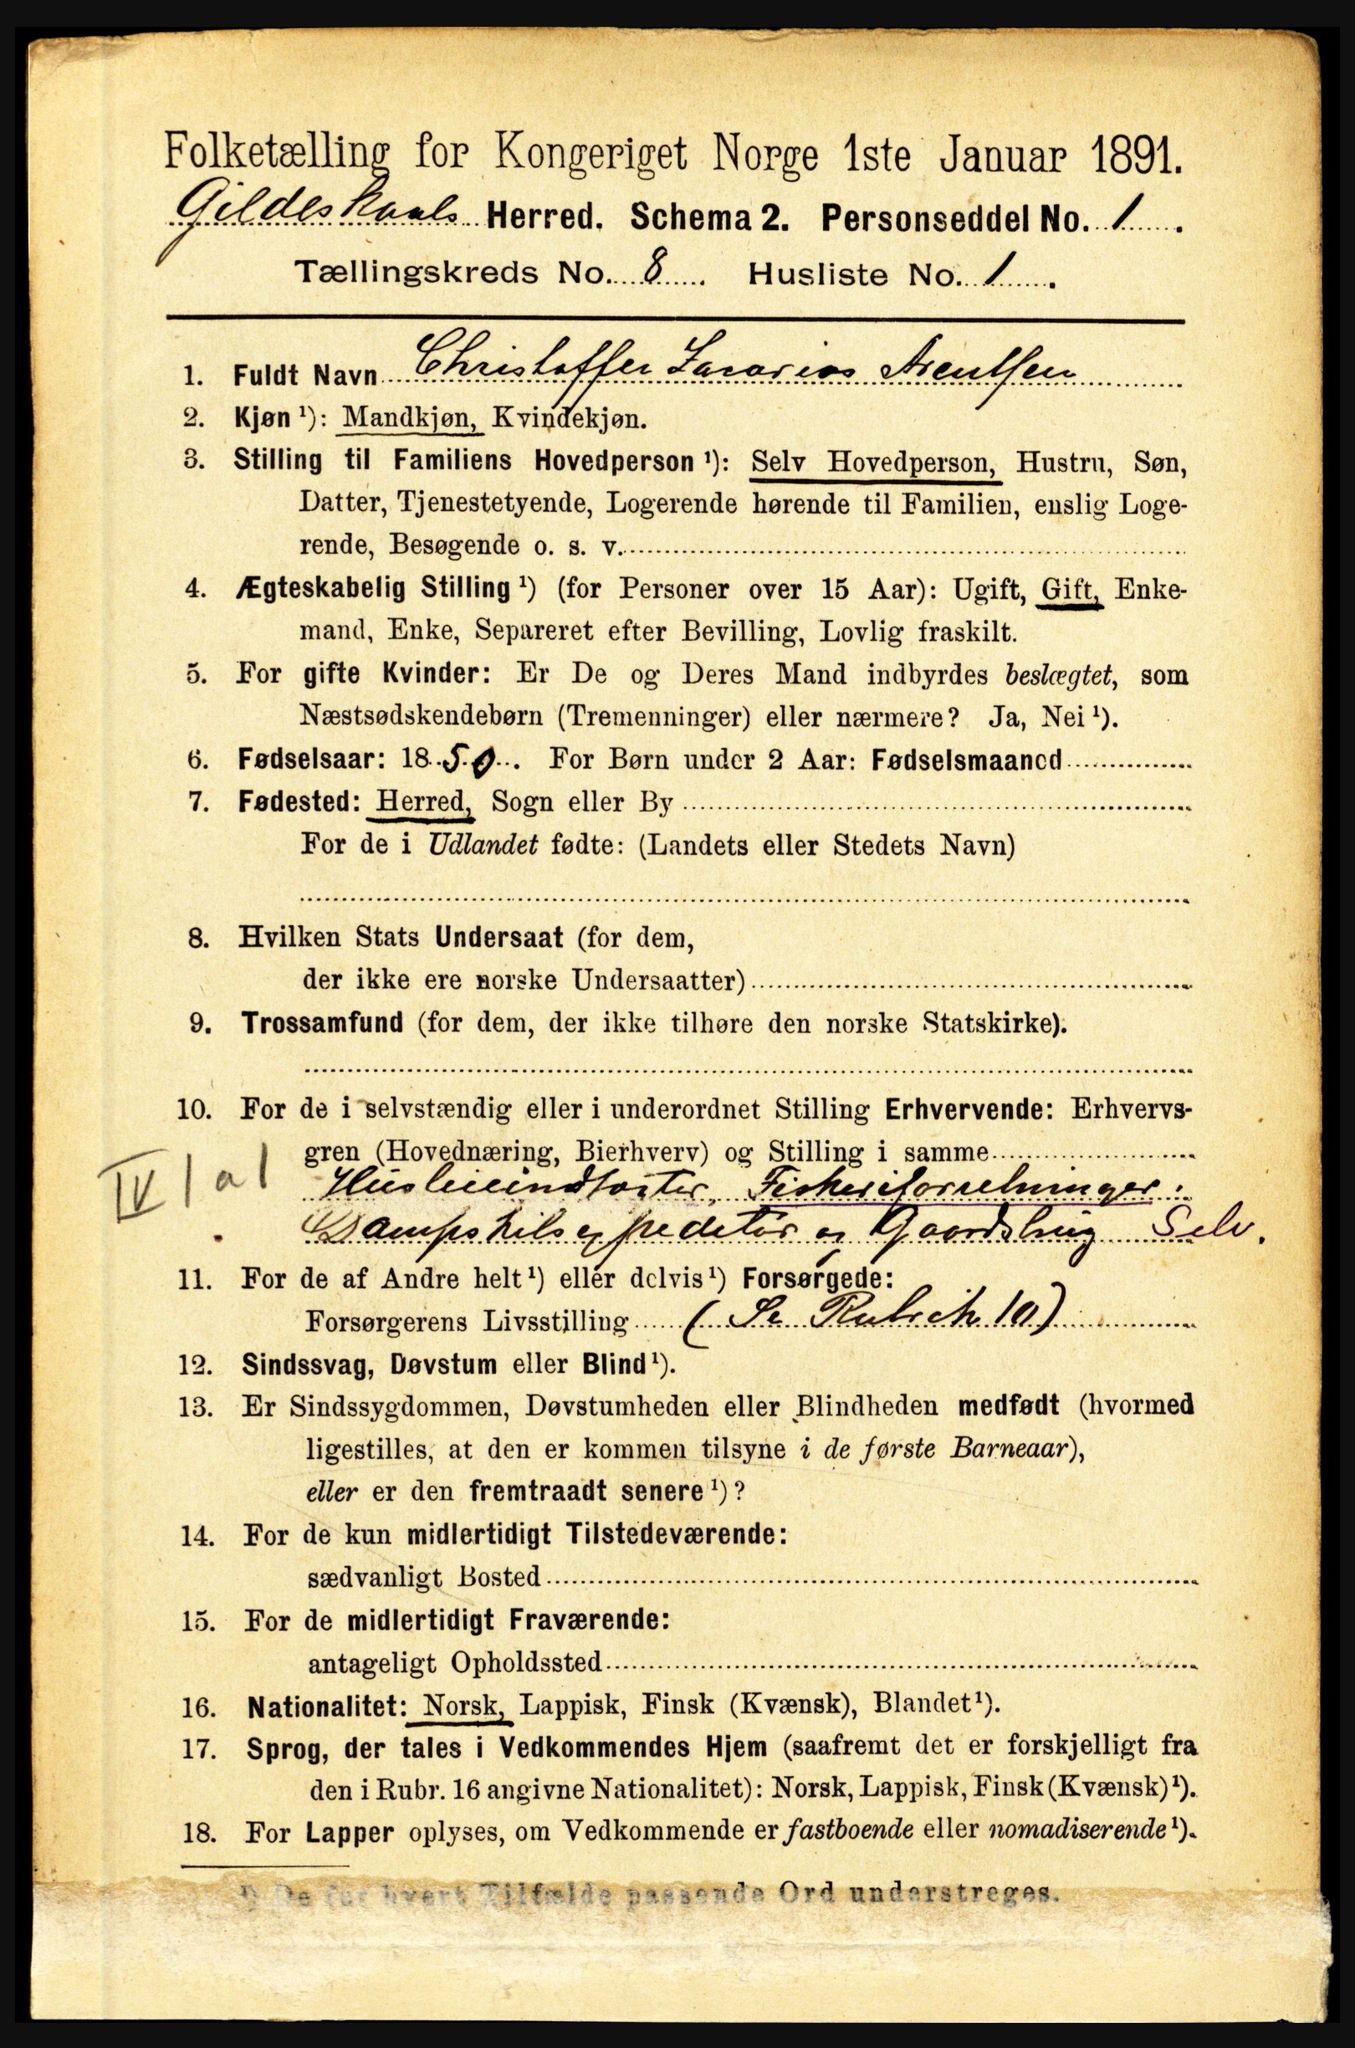 Folketælling for Kongeriget Norge 1ste Januar 1891.
Gildeskaals Herred. Schema 2. Personseddel No. 1.
Tællingskreds No. 8. Husliste No. 1.
1. Fuldt Navn Christoffer Zacarias Arentsen
2. Kjøn ¹): Mandkjøn, Kvindekjøn.
3. Stilling til Familiens Hovedperson ¹): Selv Hovedperson, Hustru, Søn,
Datter, Tjenestetyende, Logerende hørende til Familien, enslig Loge-
rende, Besøgende o. s. v.
4. Ægteskabelig Stilling ¹) (for Personer over 15 Aar): Ugift, Gift, Enke-
mand, Enke, Separeret efter Bevilling, Lovlig fraskilt.
5. For gifte Kvinder: Er De og Deres Mand indbyrdes beslægtet, som
Næstsødskendebørn (Tremenninger) eller nærmere? Ja, Nei ¹).
6. Fødselsaar: 1850. For Børn under 2 Aar: Fødselsmaaned
7. Fødested: Herred, Sogn eller By
For de i Udlandet fødte: (Landets eller Stedets Navn)
8. Hvilken Stats Undersaat (for dem,
der ikke ere norske Undersaatter)
9. Trossamfund (for dem, der ikke tilhøre den norske Statskirke).
10. For de i selvstændig eller i underordnet Stilling Erhvervende: Erhvervs-
gren (Hovednæring, Bierhverv) og Stilling i samme
IV 1 a 1
Fiskeriforretninger
Dampskibsexpeditør og Gaardsbrug Selv.
11. For de af Andre helt ¹) eller delvis ¹) Forsørgede:
Forsørgerens Livsstilling (Se Rubrik 10)
12. Sindssvag, Døvstum eller Blind ¹).
13. Er Sindssygdommen, Døvstumheden eller Blindheden medfødt (hvormed
ligestilles, at den er kommen tilsyne i de første Barneaar),
eller er den fremtraadt senere ¹)?
14. For de kun midlertidigt Tilstedeværende:
sædvanligt Bosted
15. For de midlertidigt Fraværende:
antageligt Opholdssted
16. Nationalitet: Norsk, Lappisk, Finsk (Kvænsk), Blandet ¹).
17. Sprog, der tales i Vedkommendes Hjem (saafremt det er forskjelligt fra
den i Rubr. 16 angivne Nationalitet): Norsk, Lappisk, Finsk (Kvænsk) ¹).
18. For Lapper oplyses, om Vedkommende er fastboende eller nomadiserende ¹).
¹) De for hvert Tilfælde passende Ord understreges.